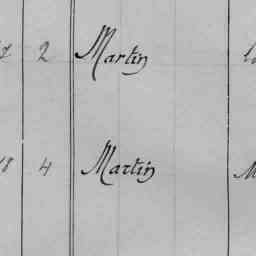 2 Martin
4 Martin